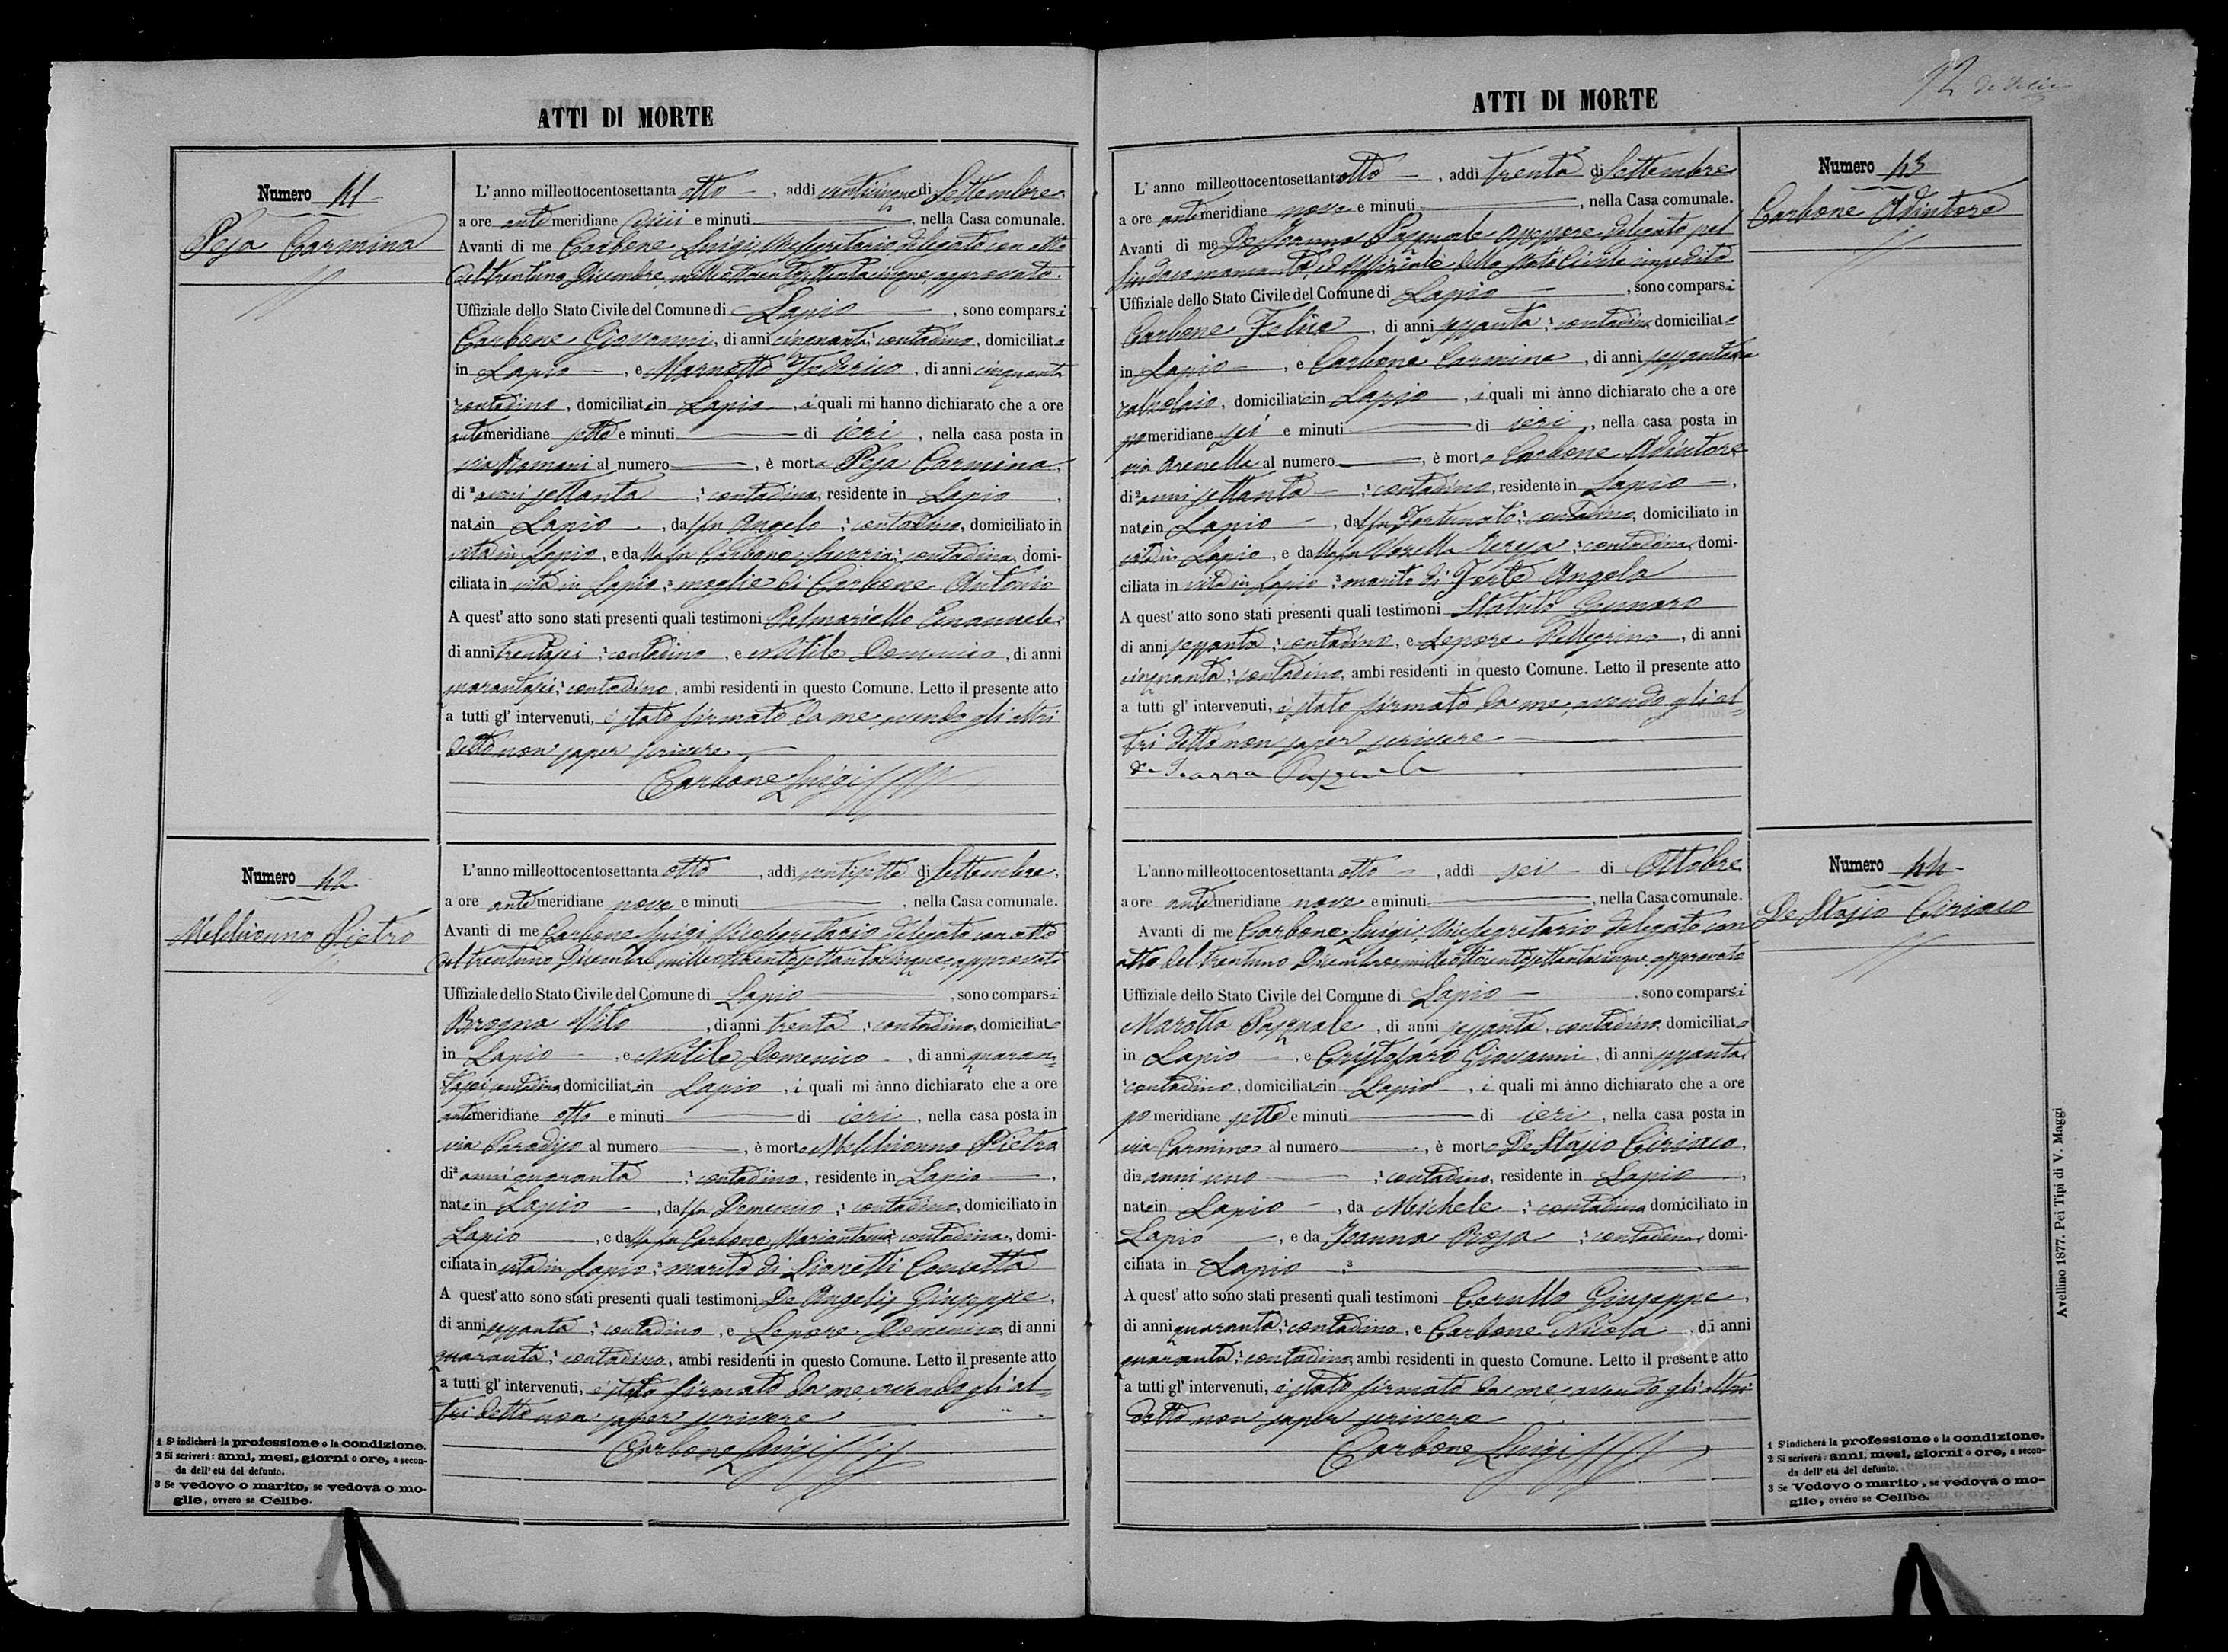 ATTI DI MORTE
Numero 41
Peja Carmina
L' anno milleottocentosettanta otto, addì venticinque di Settembre
a ore ante meridiane e minuti, nella Casa comunale.
Avanti di me Carbone Luigi, Vicesegretario delegato con atto
del trentuno Dicembre milleottocentosettantacinque, approvato.
Uffiziale dello Stato Civile del Comune di Lapio, sono comparsi
Carbone Giovanni, di anni cinquanta, contadino, domiciliato
in Lapio, e Federico, di anni cinquanta
contadino, domiciliato in Lapio, i quali mi hanno dichiarato che a ore
antemeridiane sette e minuti di ieri, nella casa posta in
via Romani al numero, è morta Peja Carmina,
di ² anni settanta ¹ contadina, residente in Lapio,
nata in Lapio, dal fu Angelo ¹ contadino, domiciliato in
vita in Lapio, e dalla fu Carbone Saveria ¹ contadina, domi-
ciliata in vita in Lapio ³ moglie di Carbone Antonio
A quest' atto sono stati presenti quali testimoni Palmariello Emanuele
di anni trentasei ¹ contadino, e Nutile Domenico, di anni
quarantasei ¹ contadino, ambi residenti in questo Comune. Letto il presente atto
a tutti gl' intervenuti, è stato firmato da me, avendo gli altri
detto non saper scrivere
Carbone Luigi
Numero 42
Melchionno Pietro
L'anno milleottocentosettanta otto, addì ventisette di Settembre,
a ore ante meridiane nove e minuti, nella Casa comunale.
Avanti di me Carbone Luigi Vicesegretario delegato con atto
del trentuno Dicembre milleottocentosettantacinque, approvato
Uffiziale dello Stato Civile del Comune di Lapio, sono comparsi
Brogna Vito, di anni trenta ¹ contadino, domiciliato
in Lapio, e Nutile Domenico, di anni quaran-
tasei, contadino domiciliato in Lapio, i quali mi ànno dichiarato che a ore
antemeridiane otto e minuti di ieri, nella casa posta in
via Paradiso al numero, è morto Melchionno Pietro
di ² anni quaranta ¹ contadino, residente in Lapio,
nato in Lapio, dal fu Domenico ¹ contadino, domiciliato in
Lapio, e dalla fu Carbone Mariantonia contadina, domi-
ciliata in vita in Lapio ³ marito di Lianetti Concetta
A quest' atto sono stati presenti quali testimoni De Angelis Giuseppe,
di anni sessanta ¹ contadino, e Lepore Domenico, di anni
quaranta ¹ contadino, ambi residenti in questo Comune. Letto il presente atto
a tutti gl' intervenuti, è stato firmato da me, avendo gli al-
tri detto non saper scrivere
Carbone Luigi
1 S' indicherà la professione o la condizione.
2 Si scriverà: anni, mesi, giorni o ore, a secon-
da dell' età del defunto.
3 Se vedovo o marito, se vedova o mo-
glie, ovvero se Celibe.
12
ATTI DI MORTE
Numero 43
Carbone Adiutore
L' anno milleottocentosettanta otto, addì trenta di Settembre
a ore ante meridiane nove e minuti, nella Casa comunale.
Avanti di me De Joanna Pasquale Assessore delegato pel
Sindaco mancante, ed Uffiziale dello Stato Civile impedito
Uffiziale dello Stato Civile del Comune di Lapio, sono comparsi
Carbone Felice, di anni sessanta ¹ contadino domiciliato
in Lapio, e Carbone Carmine, di anni
calzolaio, domiciliato in Lapio, i quali mi ànno dichiarato che a ore
pomeridiane sei e minuti di ieri, nella casa posta in
via Arenella al numero, è morto Carbone Adiutore
di ² anni settanta ¹ contadino, residente in Lapio,
nato in Lapio, dal fu Fortunato ¹ contadino, domiciliato in
vita in Lapio, e dalla fu Teresa ¹ contadina, domi-
ciliata in vita in Lapio ³ marito di Forte Angela
A quest' atto sono stati presenti quali testimoni Statuto Gennaro
di anni sessanta ¹ contadino, e Lepore Pellegrino, di anni
cinquanta ¹ contadino, ambi residenti in questo Comune. Letto il presente atto
a tutti gl' intervenuti, è stato firmato da me, avendo gli al-
tri detto non saper scrivere
De Joanna Pasquale
Numero 44
De Stasio Ciriaco
L'anno milleottocentosettanta otto, addì sei di Ottobre
a ore ante meridiane nove e minuti, nella Casa comunale.
Avanti di me Carbone Luigi, Vicesegretario delegato con
atto del trentuno Dicembre milleottocentosettantacinque, approvato
Uffiziale dello Stato Civile del Comune di Lapio, sono comparsi
Marotta Pasquale, di anni sessanta, contadino, domiciliato
in Lapio, e Cristofaro Giovanni, di anni sessanta,
¹ contadino, domiciliato in Lapio, i quali mi ànno dichiarato che a ore
po meridiane sette e minuti di ieri, nella casa posta in
via Carmine al numero, è morto De Stasio Ciriaco,
di ² anni uno ¹ contadino, residente in Lapio,
nato in Lapio, da Michele ¹ contadino domiciliato in
Lapio, e da Joanna Rosa ¹ contadina, domi-
ciliata in Lapio ³
A quest' atto sono stati presenti quali testimoni Cerullo Giuseppe,
di anni quaranta ¹ contadino, e Carbone Nicola, di anni
quaranta ¹ contadino, ambi residenti in questo Comune. Letto il presente atto
a tutti gl' intervenuti, è stato firmato da me, avendo gli altri
detto non saper scrivere
Carbone Luigi
1 S'indicherà la professione o la condizione.
2 Si scriverà: anni, mesi, giorni o ore, a secon-
da dell' età del defunto.
3 Se Vedovo o marito, se vedova o mo-
glie, ovvero se Celibe.
Avellino 1877. Pei Tipi di V. Maggi